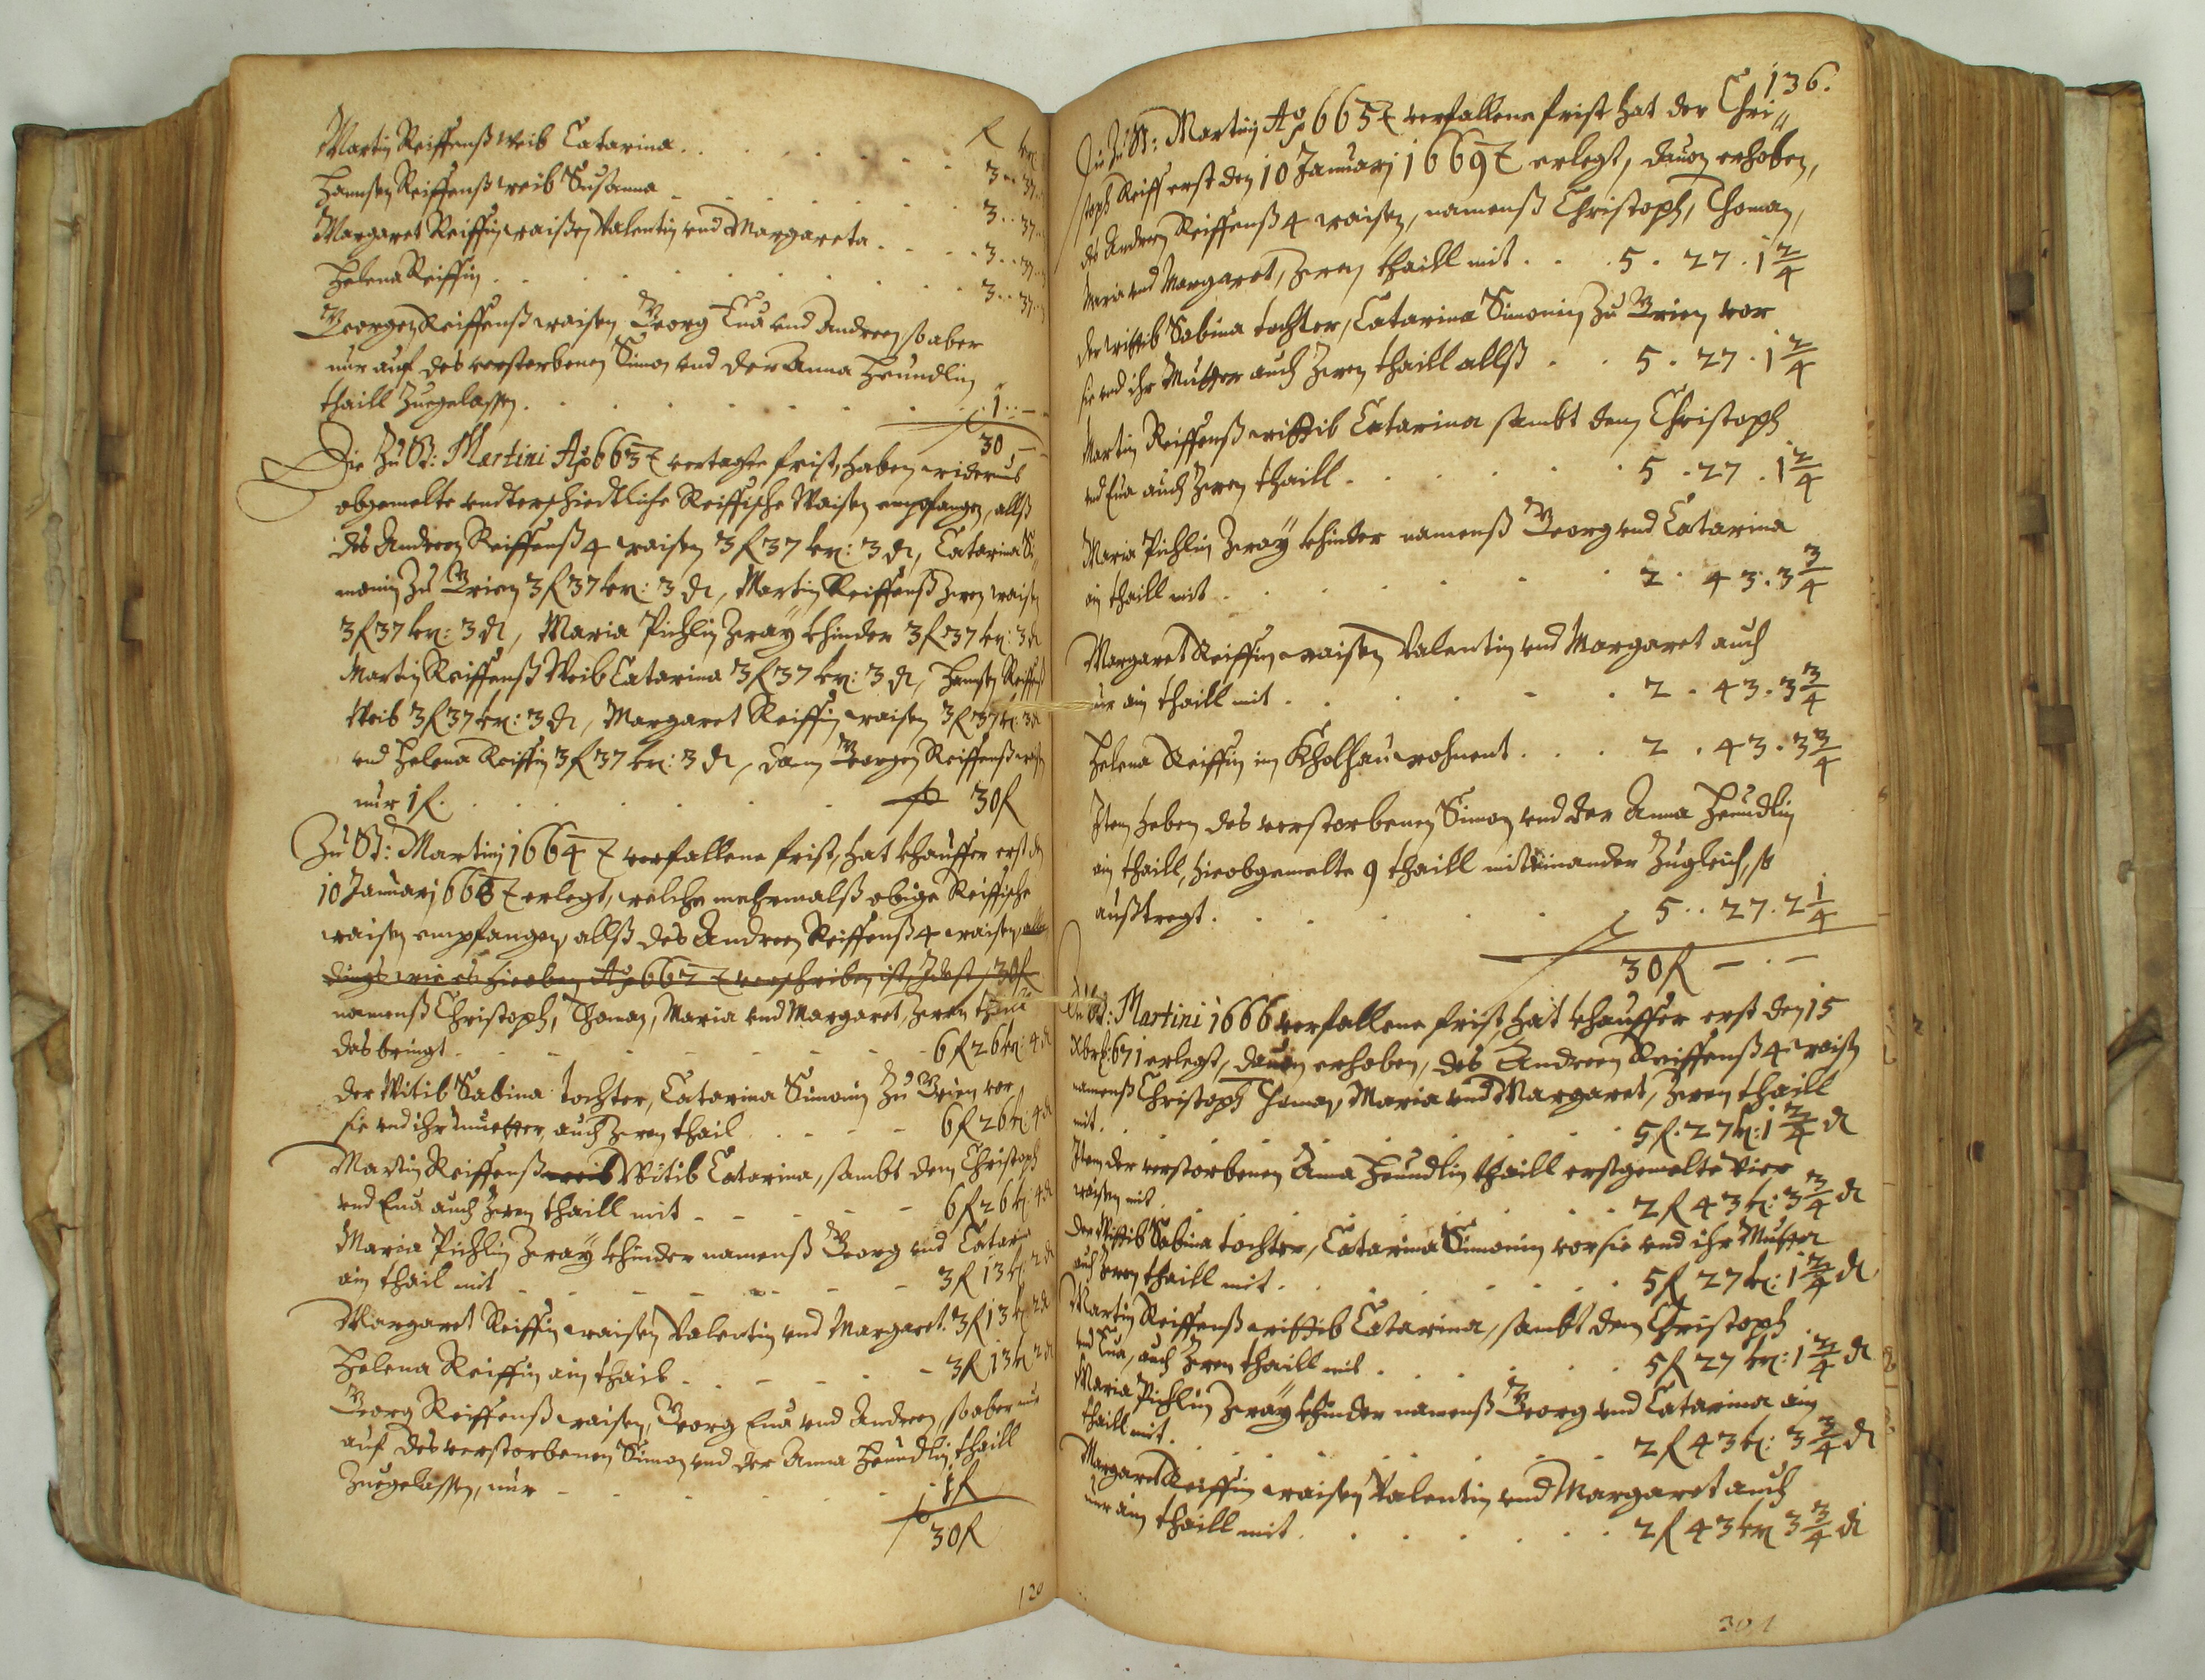 f kr:
Martin Reiffenß weib Catarina . . . 3 .. 37 ..
Hannsen Reiffenß weib Susanna . . . 3 .. 37 ..
Margaret Reiffin waißen Valentin und Margareta . . . 3 .. 37 ..
Helena Reiffin . . . 3 .. 37 ..
Georgen Reiffenß waisen Georg Eua und Andreen, so aber
nur auf des verstorbenen Simon und der Anna Heundlin
thaill Zuegelassen . . . 1 .. —
30 —
Die Zu St: Martini Ao 663 t vertagte frist, haben widerumb
obgemelte undterschiedtliche Reiffische Waisen empfangen, allß
des Andreen Reiffenß 4 waisen 3 f 37 kr: 3 dl, Catarina Si„
monin Zu Prien 3 f 37 kr: 3 dl, Martin Reiffenß zwen waisen
3 f 37 kr: 3 dl, Maria Pichlin zwaÿ khinder 3 f 37 kr: 3 dl
Martin Reiffenß Weib Catarina 3 f 37 kr: 3 dl, Hannsen Reiffenß
Weib 3 f 37 kr: 3 dl, Margaret Reiffin waisen 3 f 37 kr: 3 dl
und Helena Reiffin 3 f 37 kr: 3 dl, dann Georgen Reiffenß waisen
nur 1 f. . . . 30 f
Zu St: Martinj 1664 t verfallene frist, hat khauffer erst den
10 Januarj 666 t erlegt, welche mehrmalß obige Reiffische
waisen empfangen, allß des Andreen Reiffenß 4 waisen, aller
dings wie es hieoben Ao 662 t verschriben ist, Idest 30 f
namenß Christoph, Thoman, Maria und Margaret, zwen thaill
das bringt . . . 6 f 26 kr: 4 dl
der Witib Sabina tochter, Catarina Simonin Zu Prien vor
sie und ihr muetter, auch zwen thail . . . 6 f 26 kr: 4 dl
Martin Reiffenß weib Witib Catarina, sambt dem Christoph
und Eua auch zwen thaill mit . . . 6 f 26 kr: 4 dl
Maria Pichlin zwaÿ khinder namenß Georg und Catarina
ain thail mit . . . 3 f 13 kr: 2 dl
Margaret Reiffin waisen Valentin und Margaret. 3 f 13 kr 2 dl
Helena Reiffin ain thail . . . 3 f 13 kr 2 dl
Georg Reiffenß waisen, Georg Eua und Andreen, so aber nur
auf des verstorbenen Simon und der Anna Heundlin thaill
Zuegelassen, nur . . . 1 f
30 f
120
136.
Die Zu St: Martinj Ao 665 t verfallene frist hat der Chri„
stoph Reiff erst den 10 Januarj 1669 t erlegt, dauon erhoben,
des Andreen Reiffenß 4 waisen, namenß Christoph, Thoman,
Maria und Margaret, zwen thaill mit . . . 5 . 27 . 1 2/4
der wittib Sabina tochter, Catarina Simonin Zu Prien vor
sie und ihr Mutter auch zwen thaill allß . . . 5 . 27 . 1 2/4
Martin Reiffenß wittib Catarina sambt dem Christoph
und Eua auch zwen thaill . . . 5 . 27 . 1 2/4
Maria Pichlin zwaÿ khinder namenß Georg und Catarina
ain thaill mit . . . 2 . 43 . 3 3/4
Margaret Reiffin waisen Valentin und Margaret auch
nur ain thaill mit . . . 2 . 43 . 3 3/4
Helena Reiffin im Kholhau wohnent . . . 2 . 43 . 3 3/4
Item haben des verstorbenen Simon und der Anna Heundlin
ain thaill, hieobgemelte 9 thaill miteinander Zugleich, so
außtregt . . . 5 .. 27 . 2 1/4
30 f — . —
Zu St: Martini 1666 verfallene frist, hat khauffer erst den 15
Xbris 671 erlegt, dauon erhoben, des Andreen Reiffenß 4 waisen
namenß Christoph Thoman, Maria und Margaret, zwen thaill
mit . . . 5 f. 27 kr: 1 2/4 dl
Item der verstorbenen Anna Heundlin thaill erstgemelte vier
waisen mit . . . 2 f 43 kr: 3 3/4 dl
der Wittib Sabina tochter, Catarina Simonin vor sie und ihr Mutter
auch zwen thaill mit . . . 5 f 27 kr: 1 2/4 dl
Martin Reiffenß wittib Catarina, sambt dem Christoph
und Eua, auch zwen thaill mit . . . 5 f 27 kr: 1 2/4 dl
Maria Pichlin zwaÿ khinder namenß Georg und Catarina ain
thaill mit . . . 2 f 43 kr: 3 3/4 dl
Margaret Reiffin waisen Valentin und Margaret auch
nur ain thaill mit . . . 2 f 43 kr 3 3/4 dl
301